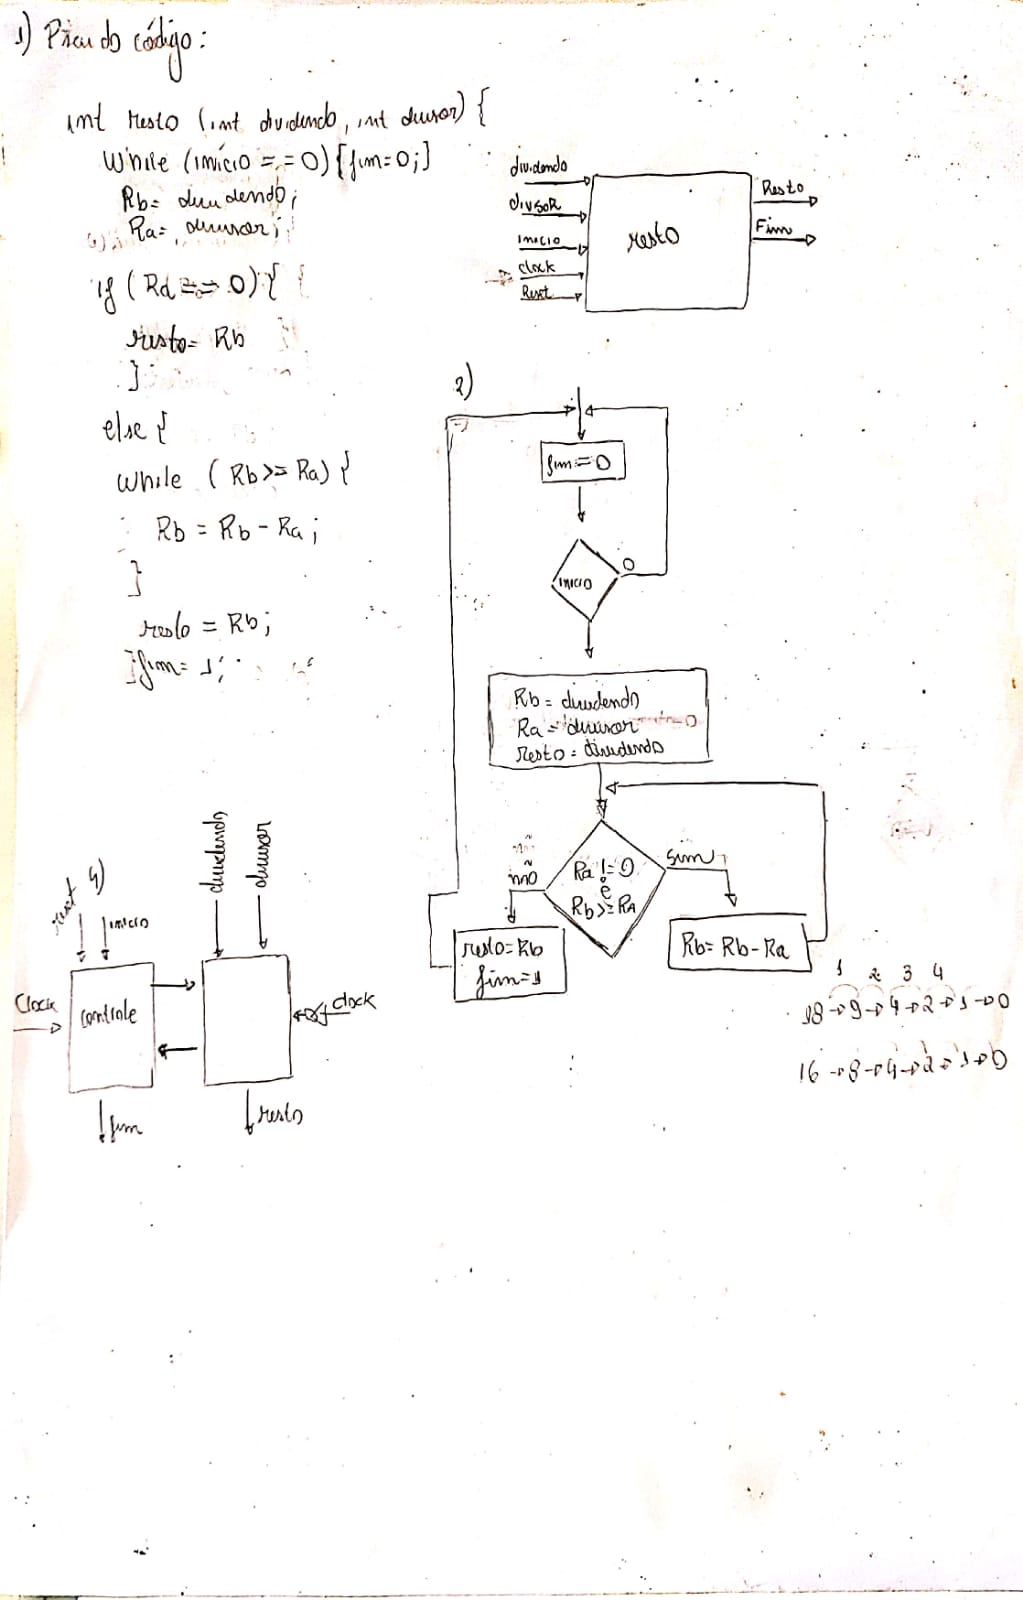 1) Pseudo código:
int resto (int dividendo, int divisor) {
While (início == 0) {fim=0;}
Rb= dividendo;
Ra= divisor;
if (Ra == 0) {
resto= Rb
}
else {
while (Rb>= Ra) {
Rb = Rb - Ra;
}
resto = Rb;
}fim= 1;
dividendo
divisoR
Inicio
clock
Reset
resto
Resto
Fim
2)
fim=0
INICIO
0
Rb= dividendo
Ra= divisor
Resto= dividendo
Ra != 0
e
Rb>=RA
não
sim
resto=Rb
fim=1
Rb= Rb-Ra
1 2 3 4
18→9→4→2→1→0
16→8→4→2→1→0
4)
reset
inicio
dividendo
divisor
Clock
controle
clock
fim
resto